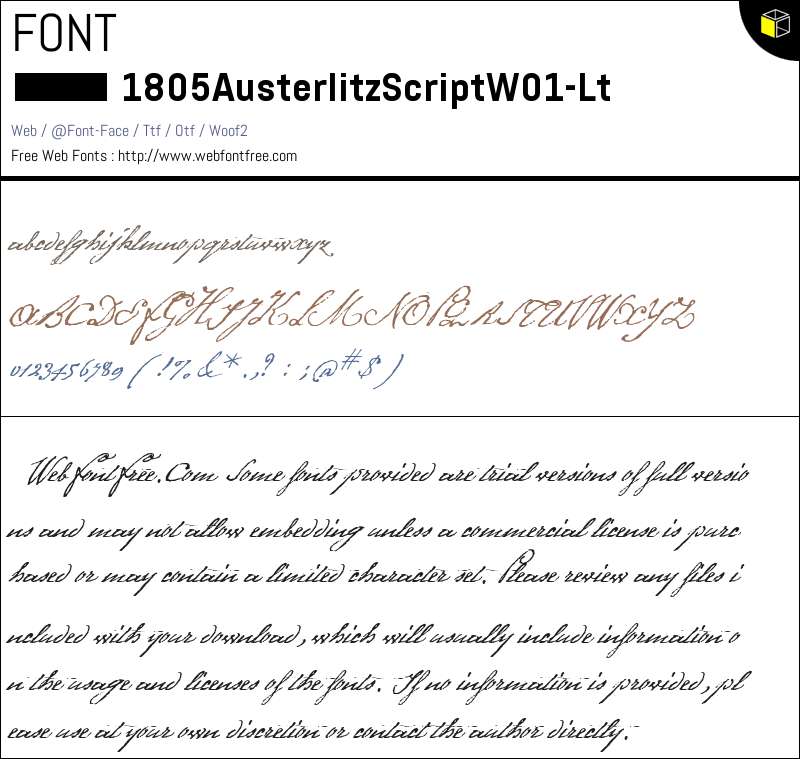 FONT
1805AusterlitzScriptW01-Lt
Web / @Font-Face / Ttf / Otf / Woof2
Free Web Fonts : http://www.webfontfree.com
abcdefghijklmnopqrstuvwxyz
ABCDEFGHIJKLMNOPQRSTUVWXYZ
0123456789 (!%&*.,? : ;@#$)
WebFontFree.Com Some fonts provided are trial versions of full versio
ns and may not allow embedding unless a commercial license is purc
hased or may contain a limited character set. Please review any files i
ncluded with your download, which will usually include information o
n the usage and licenses of the fonts. If no information is provided, pl
ease use at your own discretion or contact the author directly.